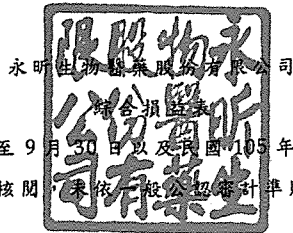 永昕生物醫藥股份有限公司
綜合損益表
至 9 月 30 日以及民國 105 年
核閱，未依一般公認審計準則
永昕生
物醫藥
股份有
限公司